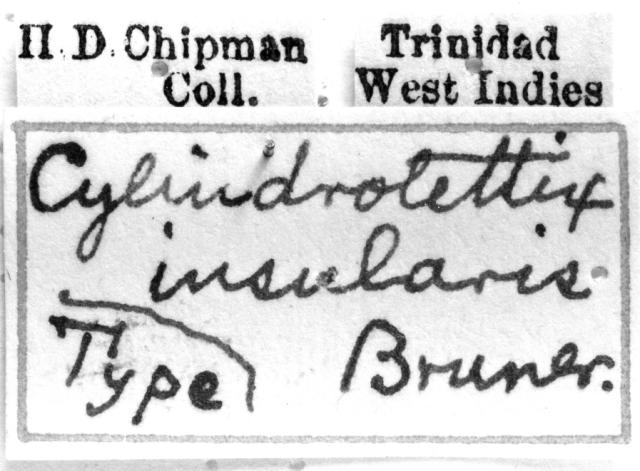 H. D. Chipman
Coll.
Trinidad
West Indies
Cylindrotettix
insularis
Type Bruner.